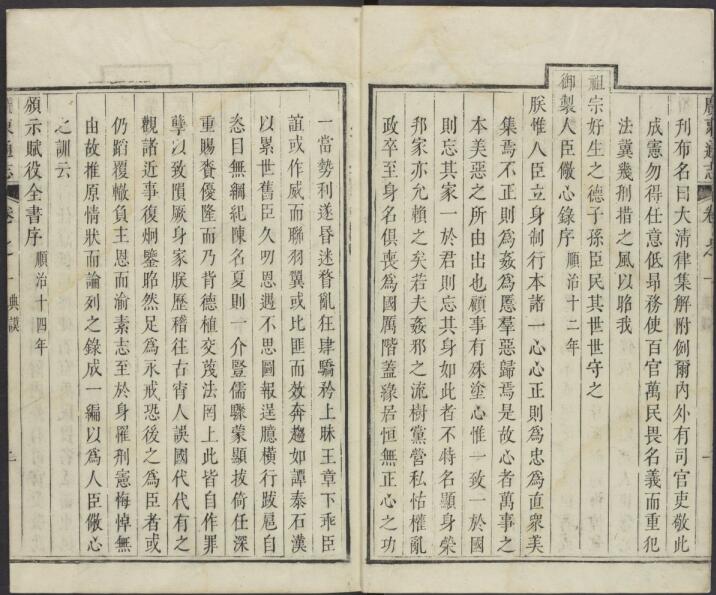 廣東通志 卷之一
刋布名曰大清律集解附例爾內外有司官吏敬此
成憲勿得任意低昻務使百官萬民畏名義而重犯
法冀幾刑措之風以昭我
祖宗好生之德子孫臣民其世世守之
御製人臣儆心錄序 順治十二年
朕惟人臣立身制行本諸一心心正則爲忠爲直衆美
集焉不正則爲姦爲慝羣惡歸焉是故心者萬事之
本美惡之所由出也顧事有殊塗心惟一致一於國
則忘其家一於君則忘其身如此者不特名顯身榮
邦家亦允賴之矣若夫姦邪之流樹黨營私怙權亂
政卒至身名俱喪爲國厲階蓋緣居恒無正心之功
一當勢利遂昏迷瞀亂狂肆驕矜上昧王章下乖臣
誼或作威而聯羽翼或比匪而效奔趨如譚泰石漢
以累世舊臣久叨恩遇不思圖報逞臆橫行跋扈自
恣目無綱紀陳名夏則一介豎儒驟蒙顯拔倚任深
重賜賚優隆而乃背德植交蔑法罔上此皆自作罪
孽以致隕厥身家朕歷稽往古宵人誤國代代有之
觀諸近事復炯鑒昭然足爲永戒恐後之爲臣者或
仍蹈覆轍負主恩而渝素志至於身罹刑憲悔悼無
由故推原情狀而論列之錄成一編以爲人臣儆心
之訓云
頒示賦役全書序 順治十四年
廣東通志 卷之一 典謨 二